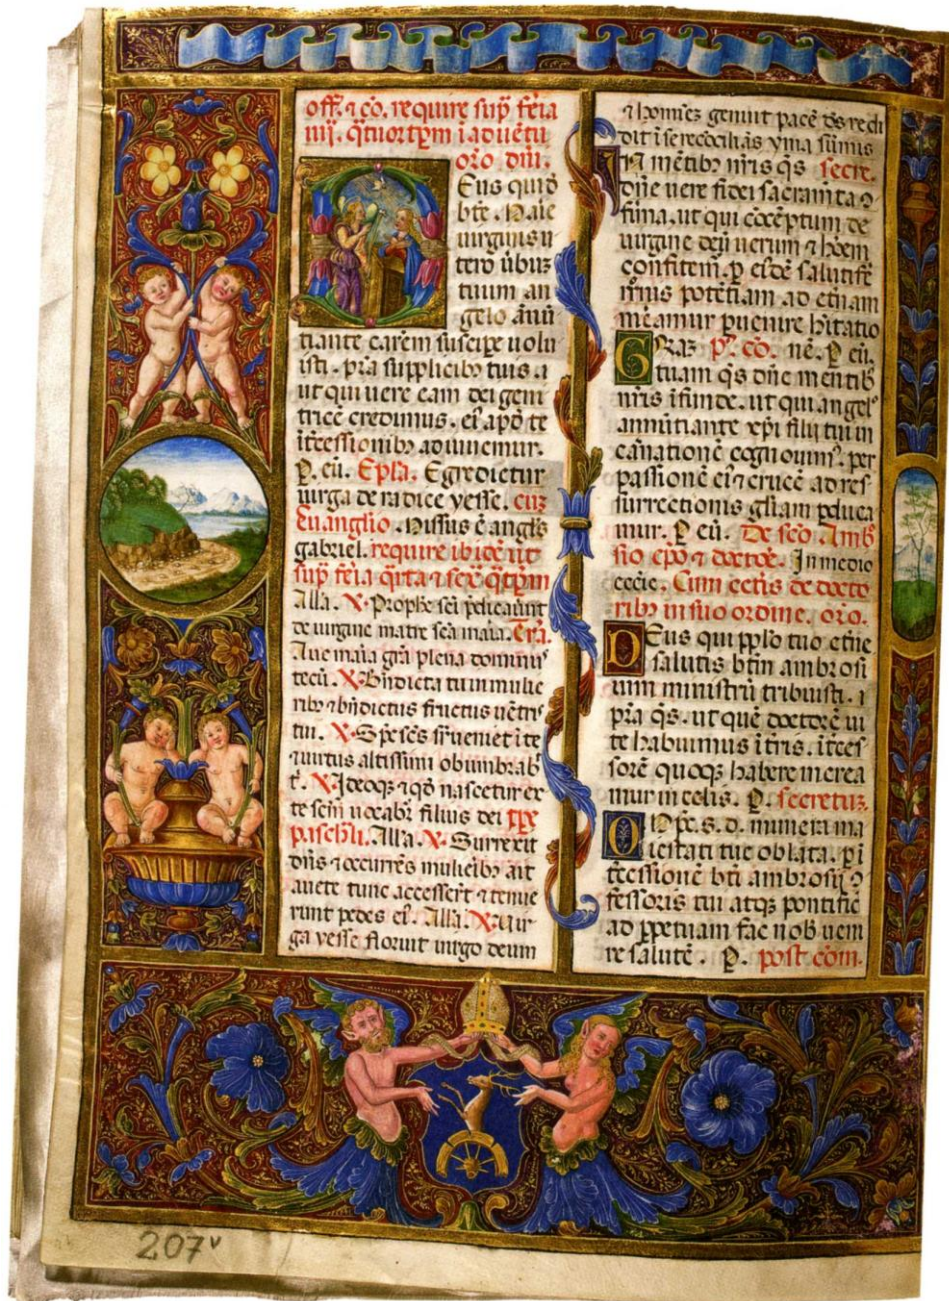 off. ⁊ cō. require sup̄ fēia
iiij. q̄tuortp̄m i aduētu
oro diu.
Eus qui d̓
btē. Maīe
uirginis u
tero ūbuꝫ
tuum an
gelo ānū
tiante carēm suscipe uolu
isti. pr̄a supplicibꝰ tuis. i
ut qui uere eam dei geni
tricē credimus. eiꝰ apd̓ te
ītēssionibꝰ adiuuemur.
P. eū. Epl̄a. Egredietur
uirga de radice yesse. cuꝫ
Euanglio. Missus ē angl̄s
gabriel. require ibidē ut
sup̄ fēia q̄rta ⁊ sexͣ q̄tp̄m
Alla. ℣. Prophē sc̄i p̄dicaūnt
de uirgine matre sc̄a maīa. Trā.
Aue maīa grā plena dominuˢ
tecū. ℣. Bn̄dicta tu in mulie
ribꝰ ⁊ bn̄dictus fructus uētriˢ
tui. ℣. Sp̄c sc̄s sr̄ueniet ī te
⁊ uirtus altissimi obumbrab̓
t̓. ℣. Ideoqꝫ ⁊ qd̓ nascetur ex
te sc̄m uocabr̄ filius dei tp̄e
pascħli. Alla. ℣. Surrexit
dn̄s ⁊ occurrēs mulieibꝰ ait
auete tunc accesser̄t ⁊ tenue
runt pedes eiꝰ. Alla. ℣. Uir
ga yesse floruit uirgo deum
⁊ hominēꝫ genuit pacē ds̄ redi
dit ī se recōciliās yma sūmis
In mētibꝰ nr̄is qs̄ secre.
dn̄e uere fidei sacram̄ta ꝯ
firma. ut qui cōcēptum de
uirgine deū uerum ⁊ hōem
confitem̄. p̱ eiꝰdē salutifē
r̄r̄nis potētiam ad etn̄am
meamur p̱uenire l̄titatio
GRaꝫ pꝰ. cō. nē. P. eū.
tuam qs̄ dn̄e mentib̓
nr̄is īfunde. ut qui angelᵒ
annūtiante xp̄i filii tui in
caʳnationē cognouimꝰ. per
passionē eiꝰ ⁊ crucē ad res
surrectionis glīam p̱duca
mur. P. eū. De sc̄o Amb̓
sio ep̄o ⁊ doctoē. In medio
ecc̄ie. Cum cet̄is de docto
ribꝰ in suo ordine. oro.
DEus qui pp̄lo tuo et̄ne
salutis bt̄m ambrosi
um ministrū tribuisti. i
pr̄a qs̄. ut quē doctorē ui
te habuimus ī t̄ris. īt̄ces
sorē quoqꝫ habere merea
mur in celis. P. secretuꝫ.
OMp̄c. s. d. munera ma
iestati tue oblata. p̱ i
t̄cessionē bt̄i ambrosij ꝯ
fessoris tui atqꝫ pontificˢ
ad p̱petuam fac nob̓ ueni
re salutē. P. post com̄.
207ᵛ